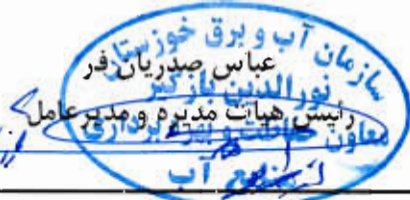 سازمان آب و برق خوزستان
عباس صدریان فر
نورالدین بازگیر
رئیس هیات مدیره و مدیرعامل
معاون حفاظت و بهره برداری
منابع آب